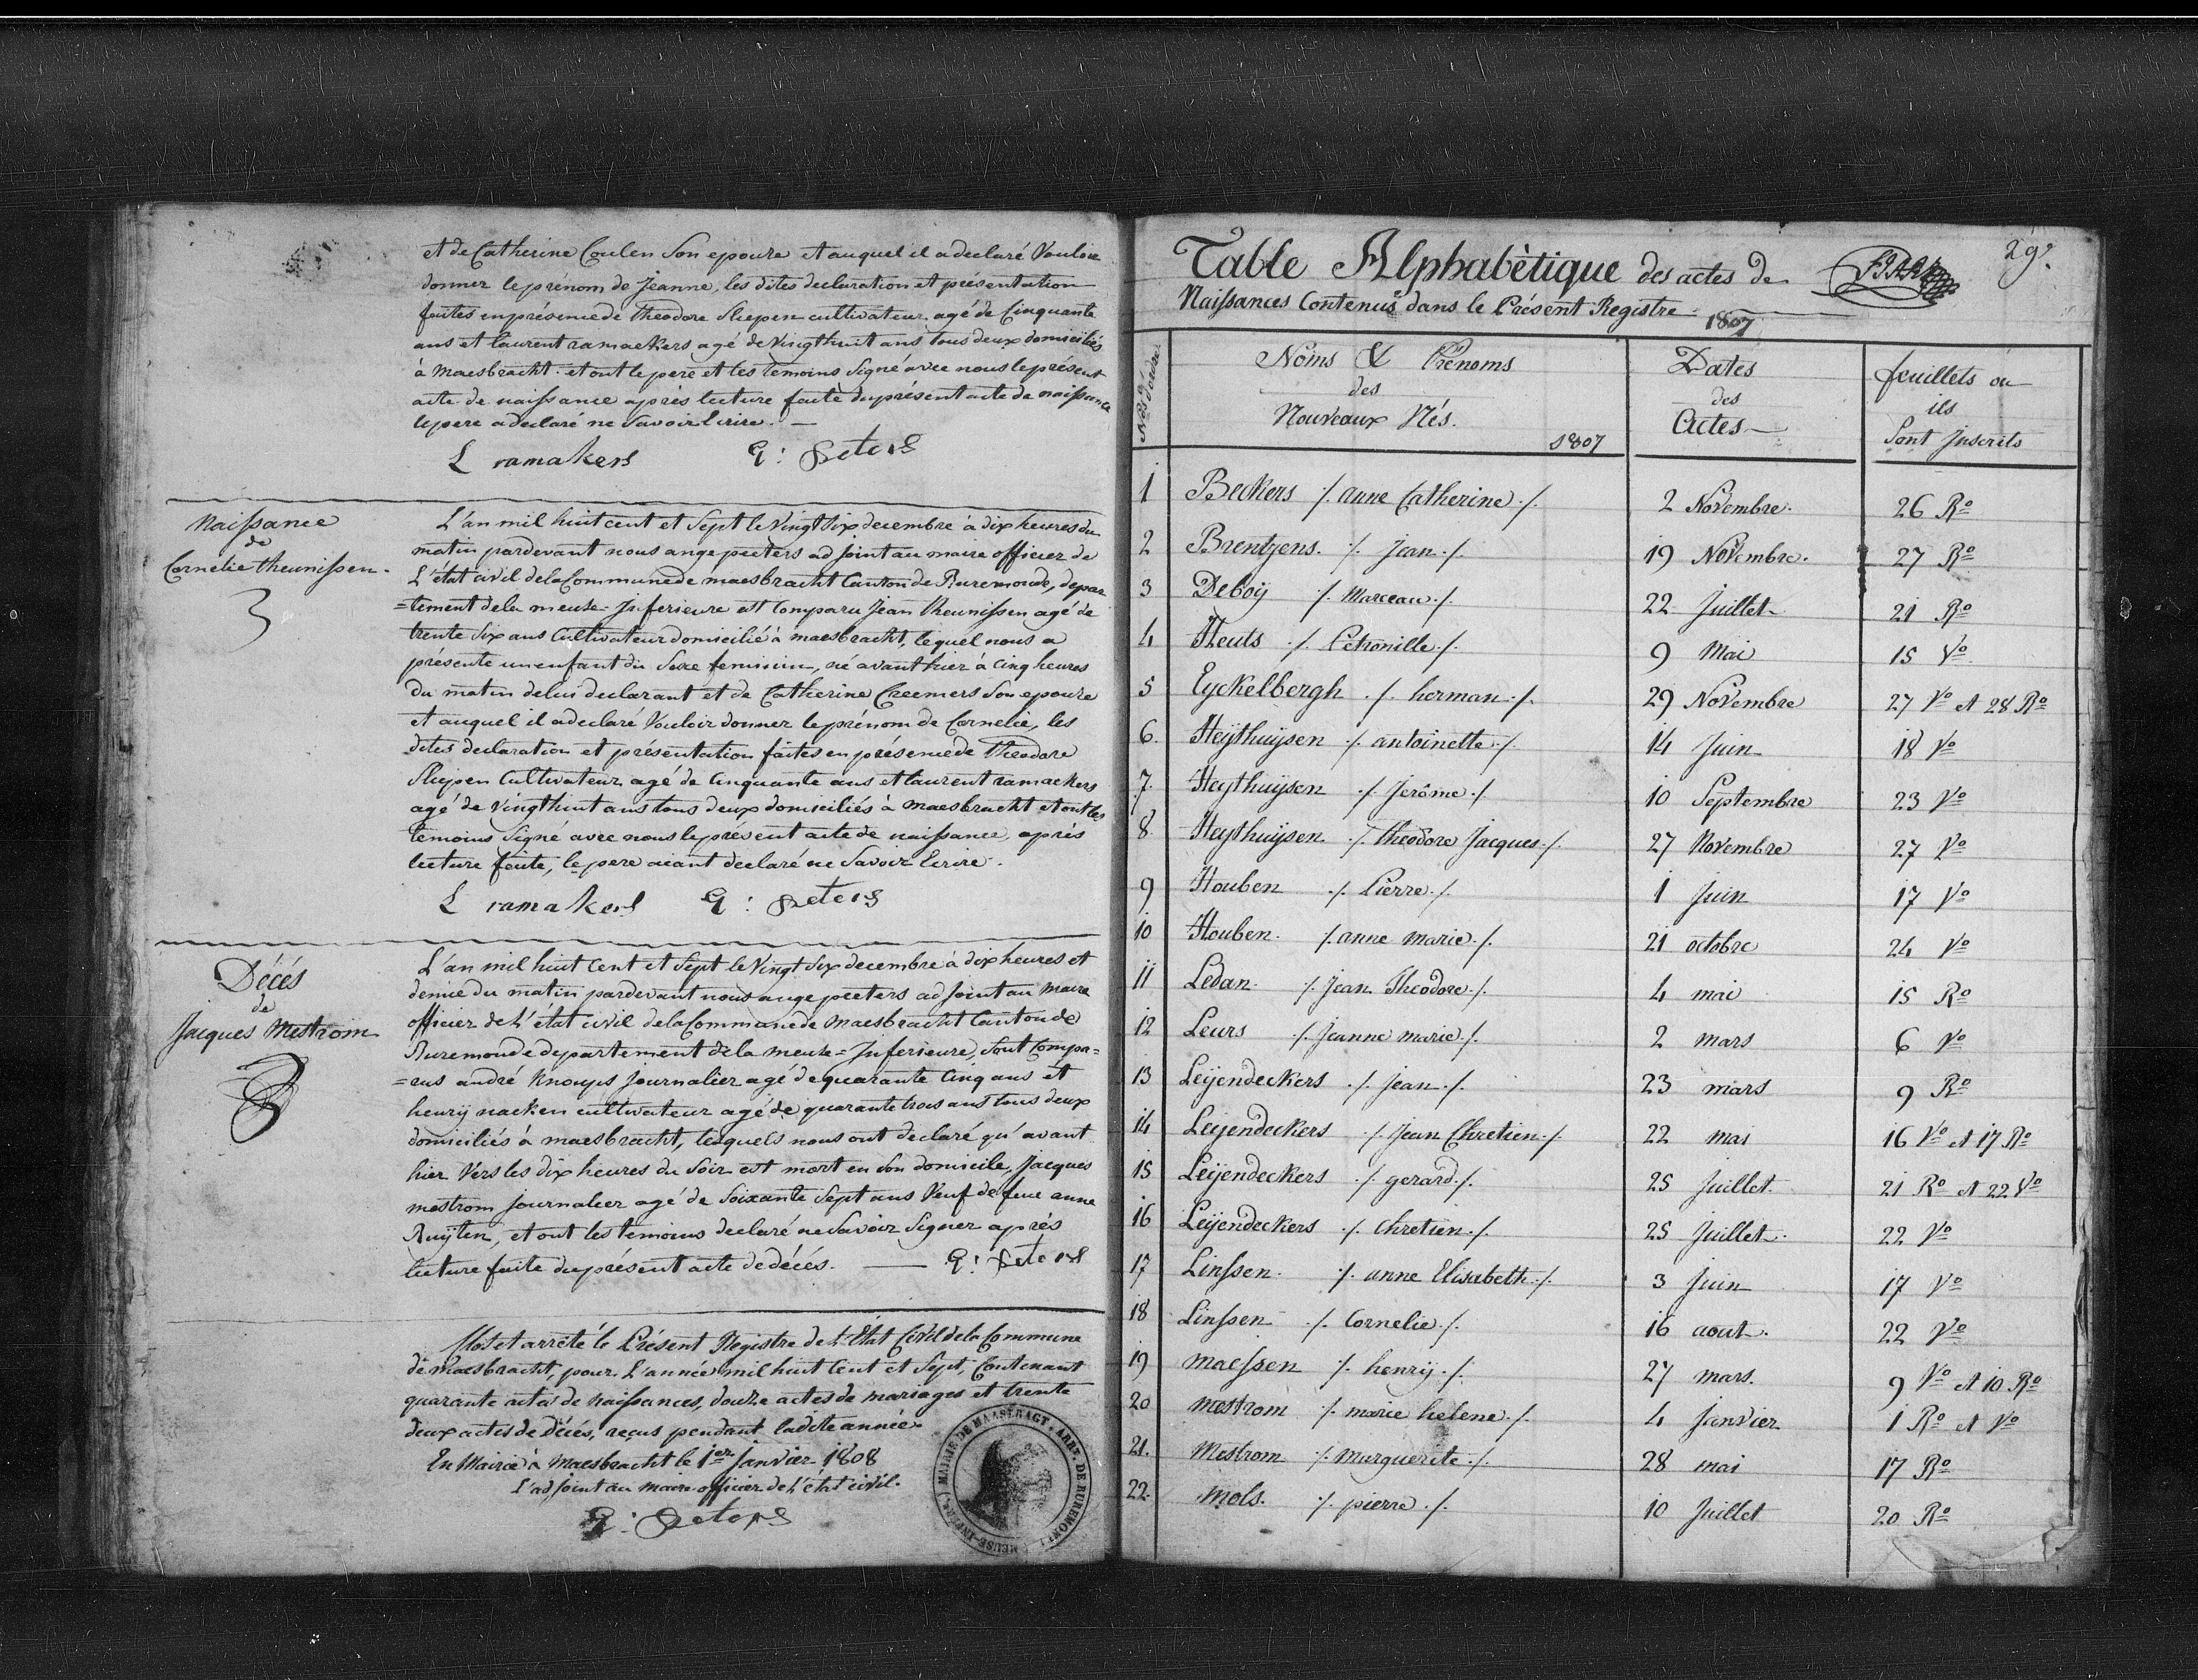 et de Catherine Coulen Son epouse et auquel il a declaré Vouloir
donner le prénom de Jeanne, les dites declaration et présentation
faites en présence de Theodore Sliepen cultivateur agé de Cinquante
ans et laurent ramaekers agé de Vingthuit ans tous deux domiciliés
à Maesbracht et ont le pere et les temoins Signé avec nous le présent
acte de naissance après lecture faite du présent acte de naissance
le pere a declaré ne Savoir Ecrire. —
L ramakers A: peters
Naissance
de
Cornelie theunissen.
L'an mil huit cent et Sept le Vingt Six decembre à dix heures du
matin pardevant nous ange peeters adjoint au maire officier de
L'état civil de la Commune de maesbracht Canton de Ruremonde, depar
=tement de la meuse-Inferieure est Comparu Jean theunissen agé de
trente Six ans Cultivateur domicilié à maesbracht, lequel nous a
présenté un enfant du Sexe feminin, né avant hier à Cinq heures
Du matin de lui declarant et de Catherine Creemers Son epouse
et auquel il a declaré Vouloir donner le prénom de Cornelie, les
dites declaration et présentation faites en présence de Theodore
Sliepen Cultivateur agé de Cinquante ans et laurent ramaekers
agé de Vingthuit ans tous deux domiciliés à maesbracht et ont les
temoins Signé avec nous le présent acte de naissance, après
lecture faite, le pere aiant declaré ne Savoir Ecrire.
L ramakers A: peters
Décés
de
Jacques Mestrom
L'an mil huit Cent et Sept le Vingt Six decembre à dix heures et
demie du matin pardevant nous ange peeters adjoint au maire
officier de L'état civil de la Commune de Maesbracht Canton de
Ruremonde departement de la meuse=Inferieure, sont Compa=
=rus andré Knoups Journalier agé de quarante Cinq ans et
henrij nacken cultivateur agé de quarante trois ans tous deux
domiciliés à maesbracht, lesquels nous ont declaré qu'avant
hier Vers les dix heures du Soir est mort en Son domicile, Jacques
mestrom Journalier agé de Soixante Sept ans Veuf de feue anne
Ruijten, et ont les temoins declaré ne Savoir Signer après
lecture faite du présent acte de décés. — A: peters
Clos et arrêté le Présent Registre de L'État Civil de la Commune
de Maesbracht, pour L'année mil huit Cent et Sept, Contenant
quarante actes de naissances, douze actes de mariages et trente
deux actes de Décés, reçus pendant la dite année
En Mairie à Maesbracht le 1er Janvier 1808
L'adjoint au maire officier de L'état civil.
A: peters
MAIRIE DE MAASBRAGT. ARRT. DE RUREMONDE MEUSE-INFRE.
29.
Table Alphabètique des actes de
Naissances Contenus dans le Présent Registre
1807
Nos d'ordre
Noms & Prénoms
des
Nouveaux Nés.
1807
Dates
des
Actes
feuillets ou
ils
Sont Inscrits
1 Beckers ./. anne Catherine ./. 2 Novembre. 26 Ro
2 Brentjens. ./. Jean ./. 19 Novembre. 27 Ro
3 Deboij ./. Marceau ./. 22 Juillet 21 Ro
4 Heuts ./. Petronille ./. 9 Mai 15 Vo
5 Eyckelbergh ./. herman ./. 29 Novembre 27 Vo et 28 Ro
6. Heijthuijsen ./. antoinette ./. 14 Juin 18 Vo
7. Heythuijsen ./. Jerôme ./. 10 Septembre 23 Vo
8. Heythuijsen ./. Theodore Jacques ./. 27 Novembre 27 Vo
9 Houben ./. Pièrre ./. 1 Juin 17 Vo
10 Houben. ./. anne marie ./. 21 octobre 24 Vo
11 Ledan. ./. Jean Theodore ./. 4 mai 15 Ro
12 Leurs ./. Jeanne marie ./. 2 mars 6 Vo
13 Leijendeckers ./. Jean ./. 23 mars 9 Ro
14 Leijendeckers ./. Jean Chretien ./. 22 mai 16 Vo et 17 Ro
15 Leijendeckers ./. gerard ./. 25 Juillet. 21 Ro et 22 Vo
16 Leijendeckers ./. Chretien ./. 25 Juillet. 22 Vo
17 Linssen. ./. anne Elisabeth ./. 3 Juin 17 Vo
18 Linssen ./. Cornelie ./. 16 aout. 22 Vo
19 maessen ./. henrij ./. 27 mars. 9 Vo et 10 Ro
20 mestrom ./. marie helene ./. 4 Janvier 1 Ro et Vo
21. Mestrom ./. Marguerite ./. 28 mai 17 Ro
22. Mols. ./. pierre ./. 10 Juillet 20 Ro